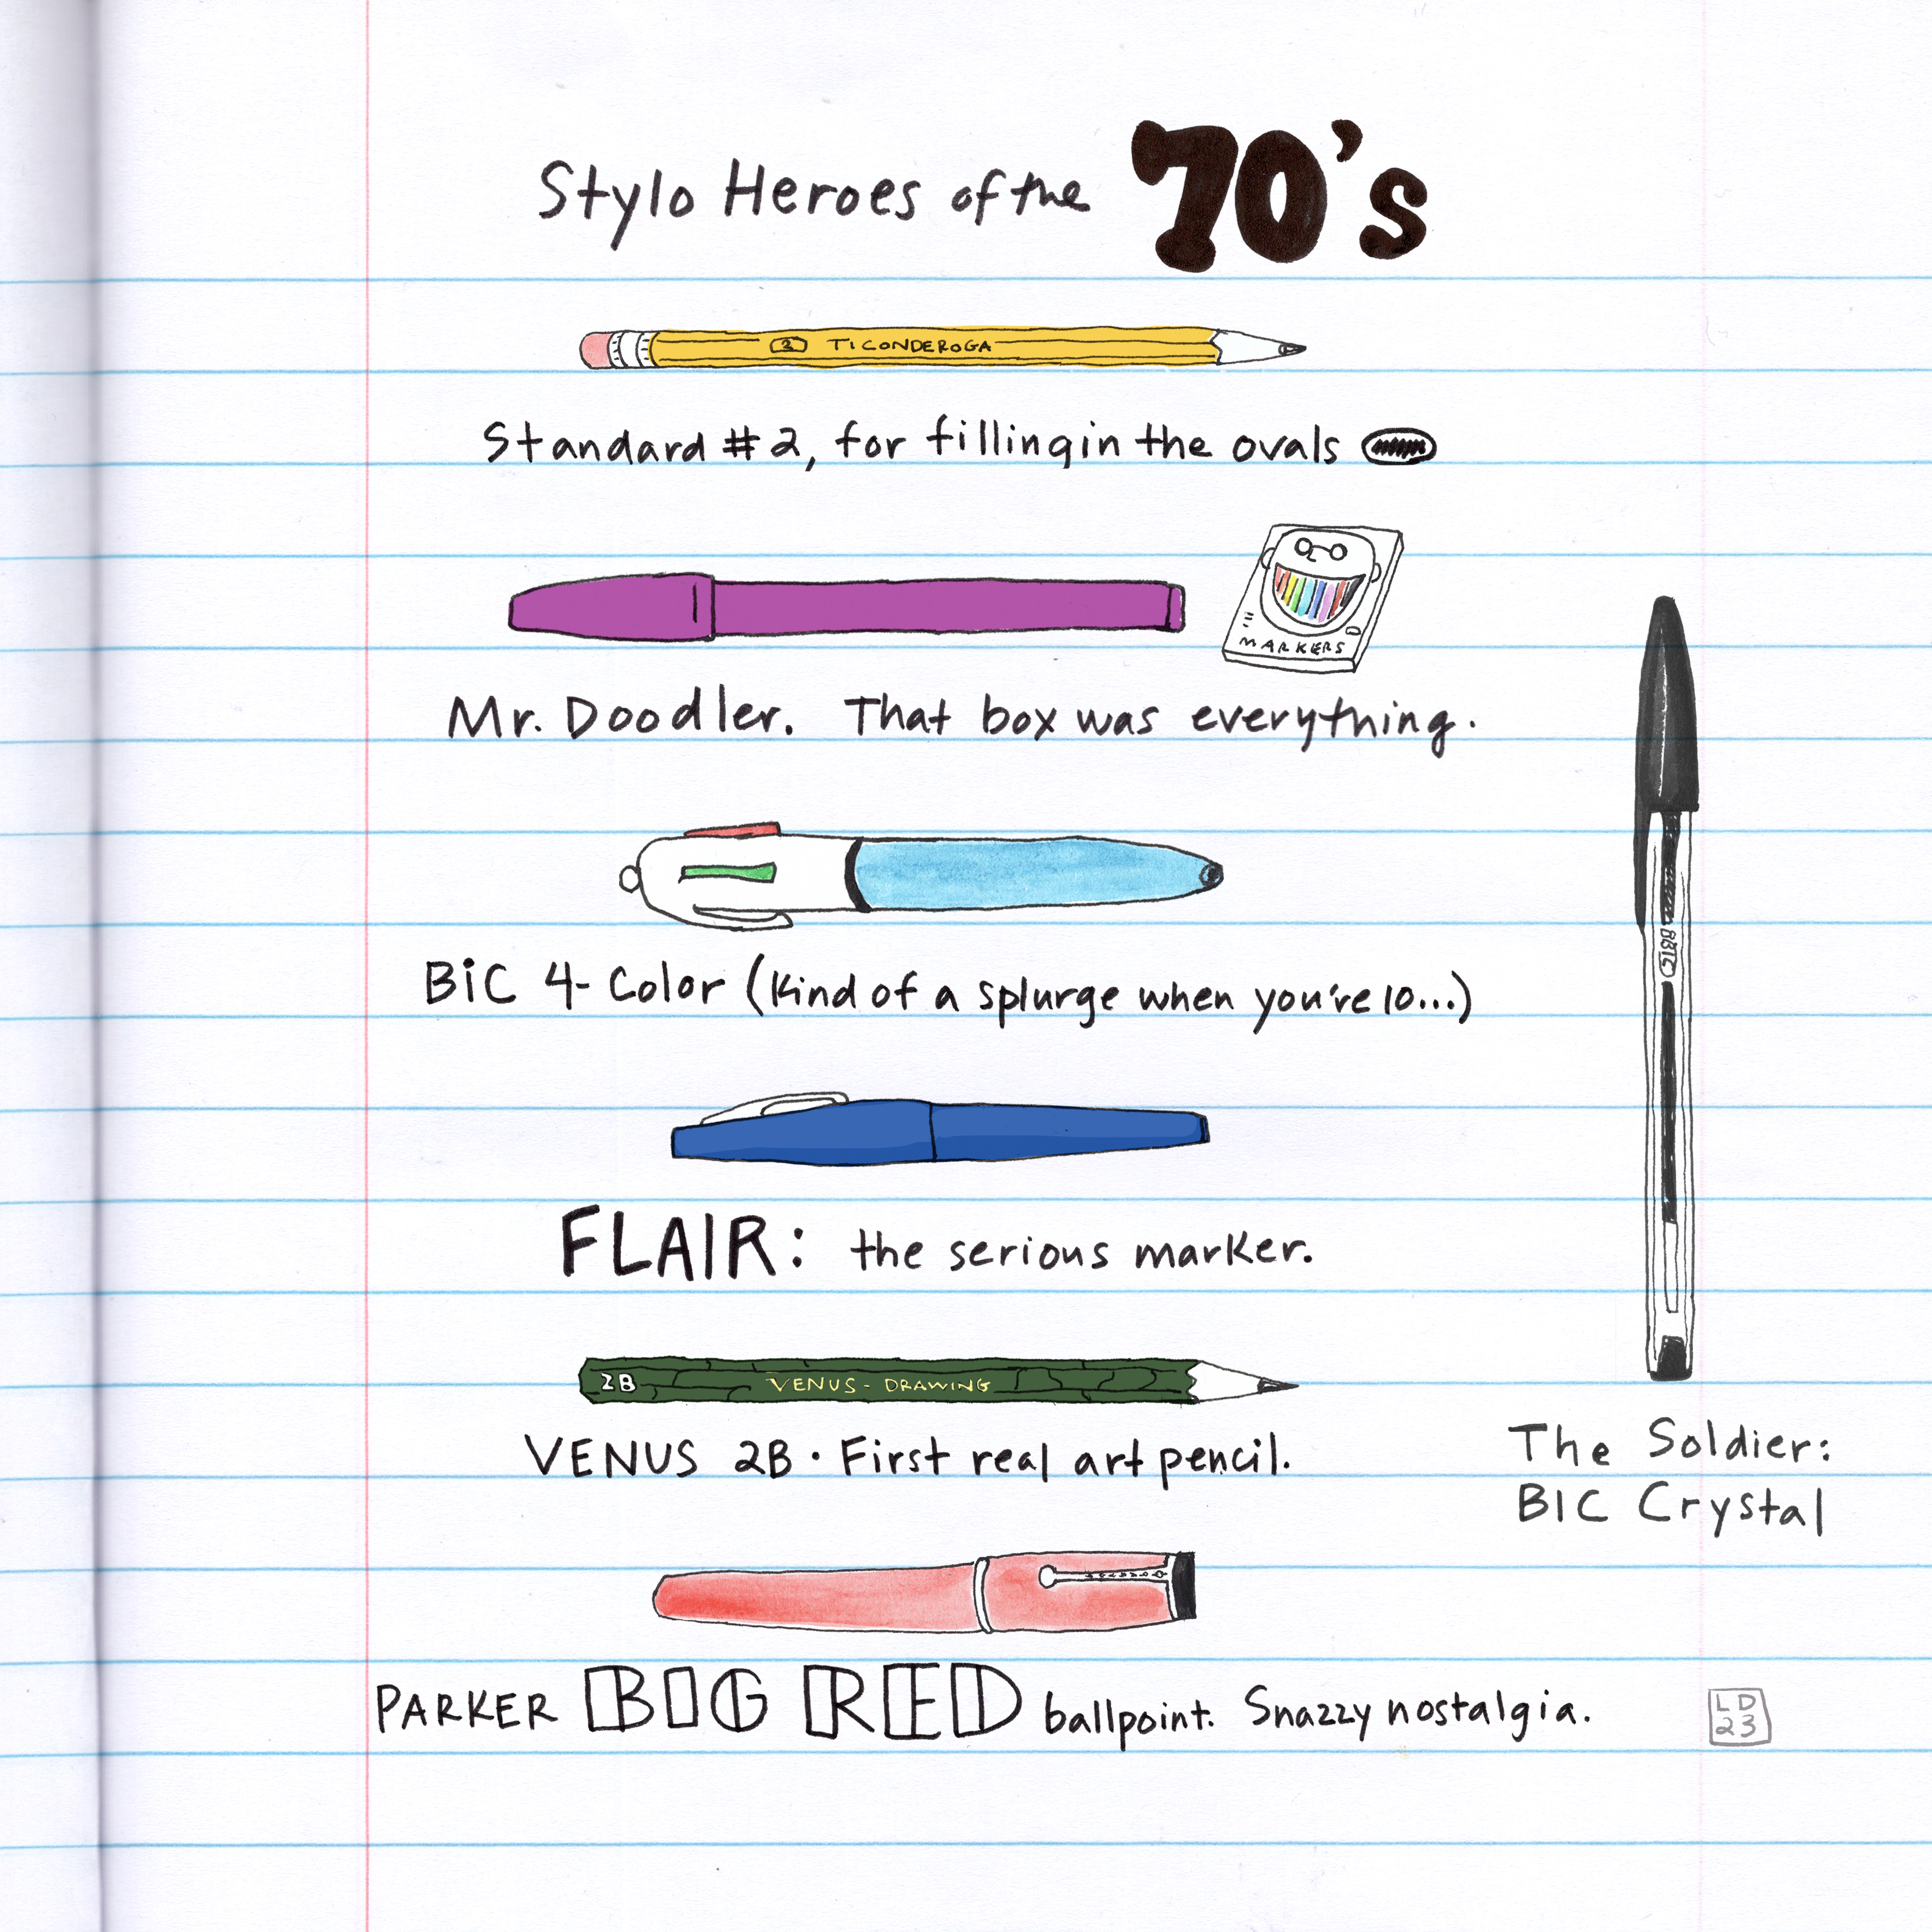 Stylo Heroes of the 70's
2 TICONDEROGA
Standard #2, for filling in the ovals
MARKERS
Mr. Doodler. That box was everything.
BiC 4-Color (Kind of a splurge when you're 10...)
FLAIR: the serious marker.
2B VENUS - DRAWING
VENUS 2B · First real art pencil.
BIC
The Soldier:
BIC Crystal
PARKER BIG RED ballpoint. Snazzy nostalgia.
LD
23